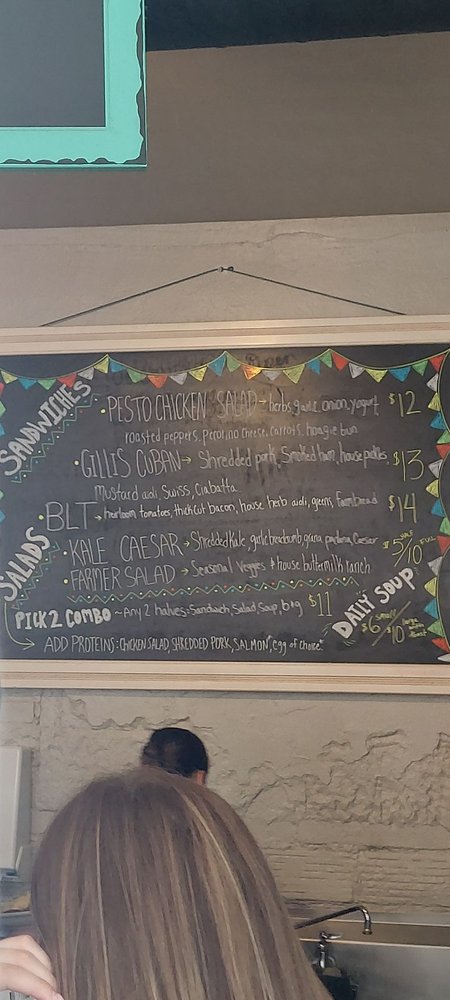 SANDWICHES
• PESTO CHICKEN SALAD → herbs, garlic, onion, yogurt $12
roasted peppers, pecorino cheese, carrots, hoagie bun
• GILLIS CUBAN → Shredded pork, Smoked ham, house pickles, $13
mustard aioli, Swiss, Ciabatta
• BLT → heirloom tomatoes, thick cut bacon, house herb aioli, greens, Farm Bread $14
SALADS
• KALE CAESAR → Shredded Kale, garlic breadcrumb, grana padana, Caesar $5 HALF/10 FULL
• FARMER SALAD → Seasonal Veggies & house buttermilk ranch
PICK 2 COMBO ~ Any 2 halves: Sandwich, Salad, Soup, $11
ADD PROTEINS: CHICKEN SALAD, SHREDDED PORK, SALMON, egg of choice
DAILY SOUP
$6 small/$10 large